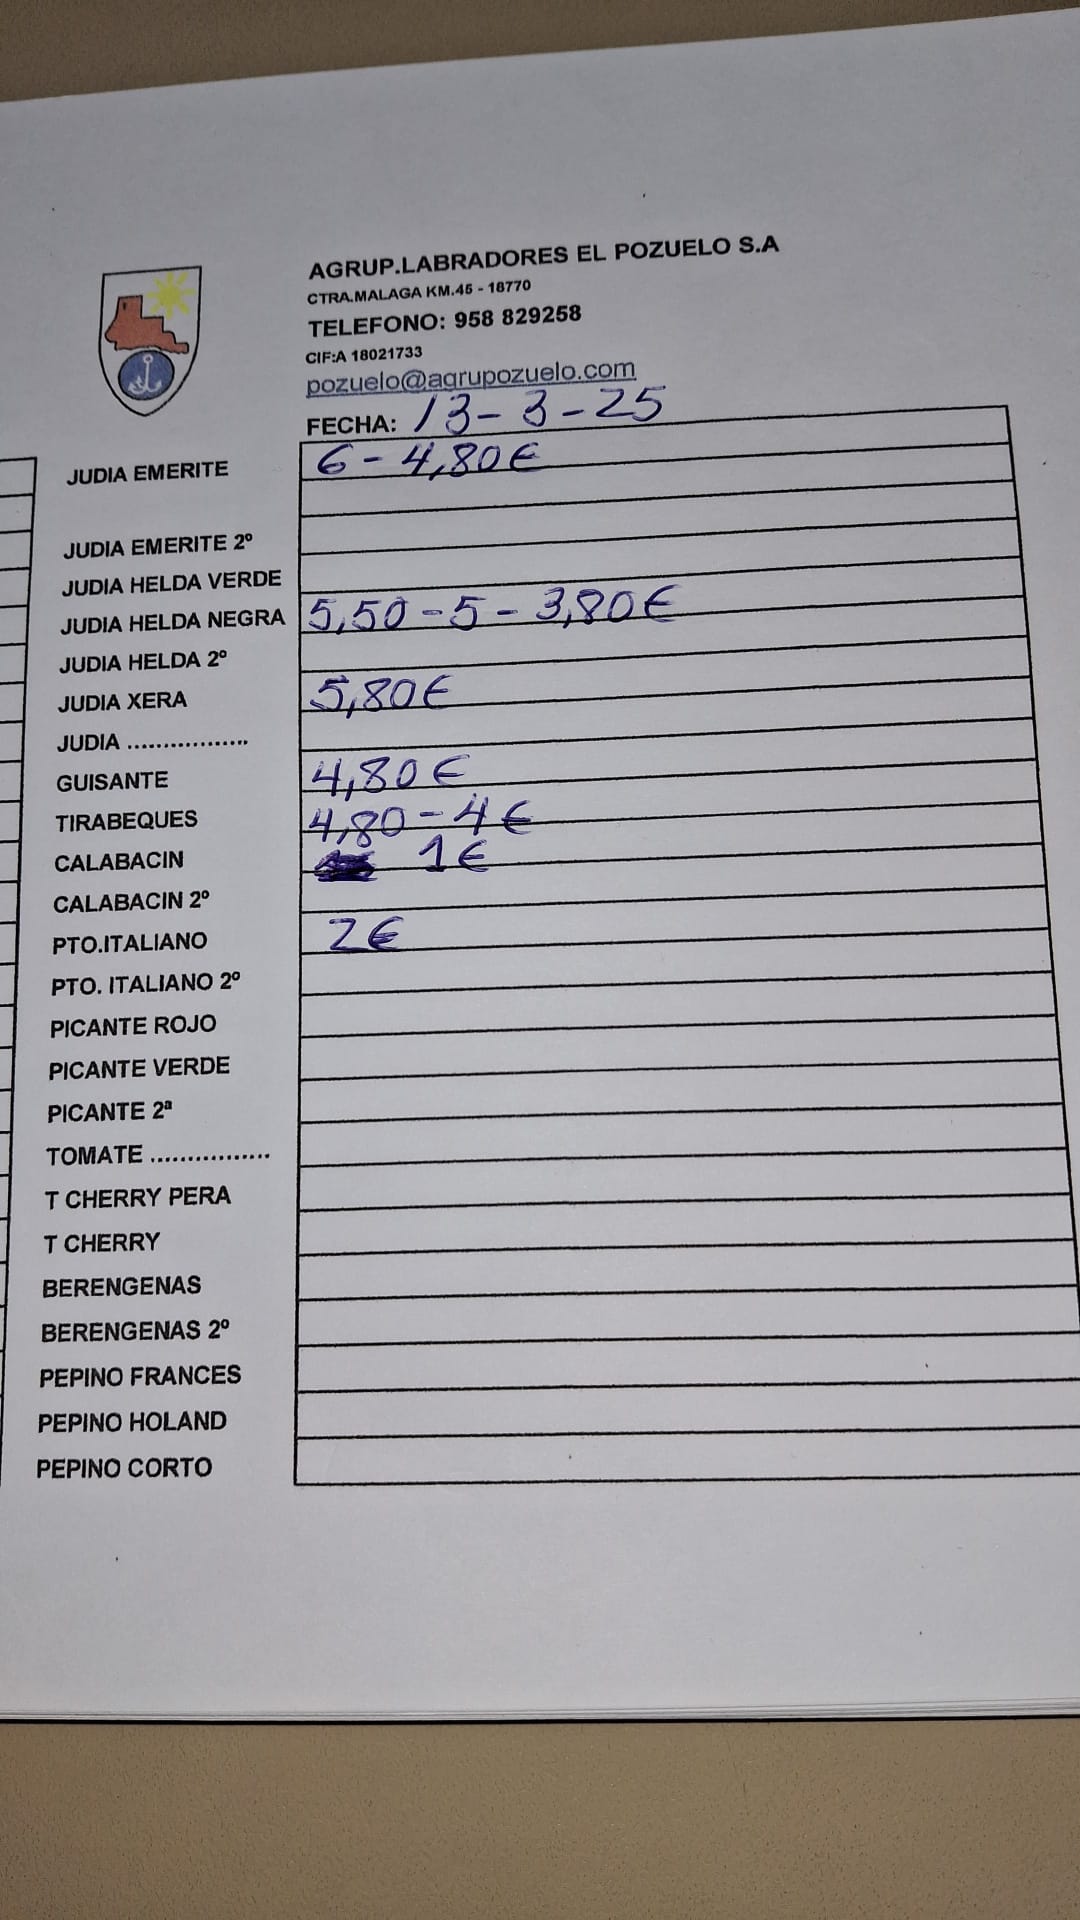 AGRUP.LABRADORES EL POZUELO S.A
CTRA.MALAGA KM.45 - 18770
TELEFONO: 958 829258
CIF:A 18021733
pozuelo@agrupozuelo.com
FECHA: 13-3-25
JUDIA EMERITE 6 - 4,80€
JUDIA EMERITE 2º
JUDIA HELDA VERDE
JUDIA HELDA NEGRA 5,50 - 5 - 3,80€
JUDIA HELDA 2º
JUDIA XERA 5,80€
JUDIA ..................
GUISANTE 4,80€
TIRABEQUES 4,80 - 4€
CALABACIN 1€
CALABACIN 2º
PTO.ITALIANO 2€
PTO. ITALIANO 2º
PICANTE ROJO
PICANTE VERDE
PICANTE 2ª
TOMATE ................
T CHERRY PERA
T CHERRY
BERENGENAS
BERENGENAS 2º
PEPINO FRANCES
PEPINO HOLAND
PEPINO CORTO